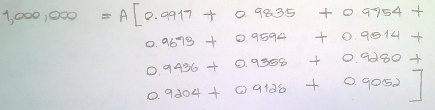 1,000,000 = A[0.9917 + 0.9835 + 0.9754 +
0.9673 + 0.9594 + 0.9514 +
0.9436 + 0.9358 + 0.9280 +
0.9204 + 0.9128 + 0.9052]